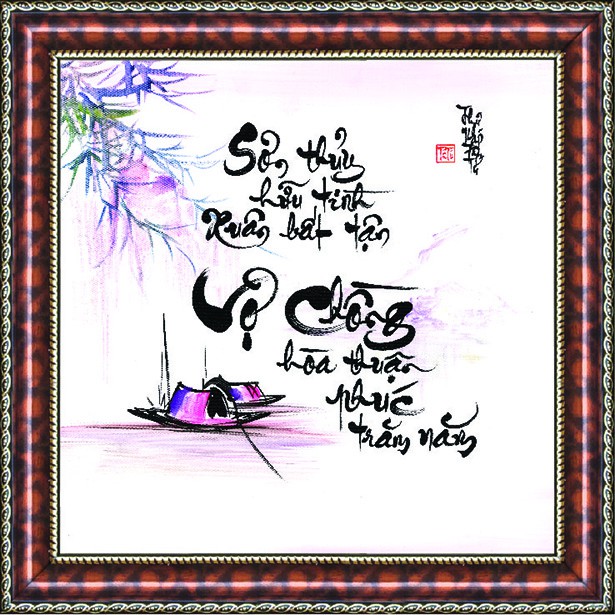 Sơn thủy
hữu tình
Xuân bất tận
Vợ Chồng
hòa thuận
phúc
trăm năm